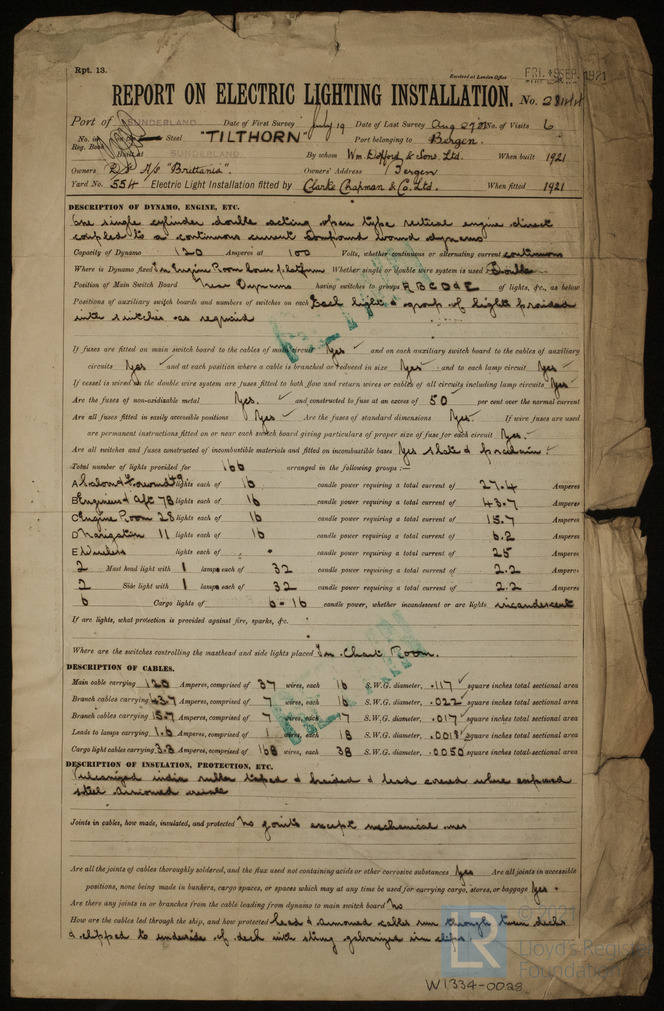 Rpt. 13.
Received at London Office FRI. 9 SEP. 1921
REPORT ON ELECTRIC LIGHTING INSTALLATION. No.
Port of SUNDERLAND Date of First Survey July 19 Date of Last Survey Aug 29 No. of Visits 6
No. in Reg. Book Steel "TILTHORN" Port belonging to Bergen.
Built at SUNDERLAND By whom Wm. Doxford & Sons. Ltd. When built 1921
Owners A/S "Brittania". Owners' Address Bergen
Yard No. 554 Electric Light Installation fitted by Clarke Chapman & Co. Ltd. When fitted 1921
DESCRIPTION OF DYNAMO, ENGINE, ETC.
One single cylinder double acting open type vertical engine direct
coupled to a continuous current compound wound dynamo
Capacity of Dynamo 120 Amperes at 100 Volts, whether continuous or alternating current continuous
Where is Dynamo fixed In Engine Room lower platform Whether single or double wire system is used Double
Position of Main Switch Board Near Dynamo having switches to groups A B C D & E of lights, &c., as below
Positions of auxiliary switch boards and numbers of switches on each Each light & group of lights provided
with switches as required
If fuses are fitted on main switch board to the cables of main circuit Yes and on each auxiliary switch board to the cables of auxiliary
circuits Yes and at each position where a cable is branched or reduced in size Yes and to each lamp circuit Yes
If vessel is wired on the double wire system are fuses fitted to both flow and return wires or cables of all circuits including lamp circuits Yes
Are the fuses of non-oxidizable metal Yes. and constructed to fuse at an excess of 50 per cent over the normal current
Are all fuses fitted in easily accessible positions Yes Are the fuses of standard dimensions Yes. If wire fuses are used
are permanent instructions fitted on or near each switch board giving particulars of proper size of fuse for each circuit Yes.
Are all switches and fuses constructed of incombustible materials and fitted on incombustible bases Yes slate & porcelain
Total number of lights provided for 166 arranged in the following groups :—
A Saloon & Forward lights each of 16 candle power requiring a total current of 27.4 Amperes
B Engineers & Aft 78 lights each of 16 candle power requiring a total current of 43.7 Amperes
C Engine Room 28 lights each of 16 candle power requiring a total current of 15.7 Amperes
D Navigation 11 lights each of 16 candle power requiring a total current of 6.2 Amperes
E Wireless lights each of candle power requiring a total current of 25 Amperes
2 Mast head light with 1 lamps each of 32 candle power requiring a total current of 2.2 Amperes
2 Side light with 1 lamps each of 32 candle power requiring a total current of 2.2 Amperes
6 Cargo lights of 6 - 16 candle power, whether incandescent or arc lights incandescent
If arc lights, what protection is provided against fire, sparks, &c.
Where are the switches controlling the masthead and side lights placed In Chart Room.
DESCRIPTION OF CABLES.
Main cable carrying 120 Amperes, comprised of 37 wires, each 16 S.W.G. diameter, .117 square inches total sectional area
Branch cables carrying 43.7 Amperes, comprised of 7 wires, each 16 S.W.G. diameter, .022 square inches total sectional area
Branch cables carrying 15.7 Amperes, comprised of 7 wires, each 17 S.W.G. diameter, .017 square inches total sectional area
Leads to lamps carrying 1.6 Amperes, comprised of 1 wires, each 18 S.W.G. diameter, .0018 square inches total sectional area
Cargo light cables carrying 3.3 Amperes, comprised of 168 wires, each 38 S.W.G. diameter, .0050 square inches total sectional area
DESCRIPTION OF INSULATION, PROTECTION, ETC.
Vulcanized india rubber taped & braided & lead covered where exposed
steel armoured
Joints in cables, how made, insulated, and protected No joints except mechanical ones
Are all the joints of cables thoroughly soldered, and the flux used not containing acids or other corrosive substances Yes Are all joints in accessible
positions, none being made in bunkers, cargo spaces, or spaces which may at any time be used for carrying cargo, stores, or baggage Yes.
Are there any joints in or branches from the cable leading from dynamo to main switch board No
How are the cables led through the ship, and how protected Lead & armoured cables run through tween decks
& clipped to underside of deck with strong galvanized iron clips.
© 2021
LR
Lloyd's Register
Foundation
W1334-0028